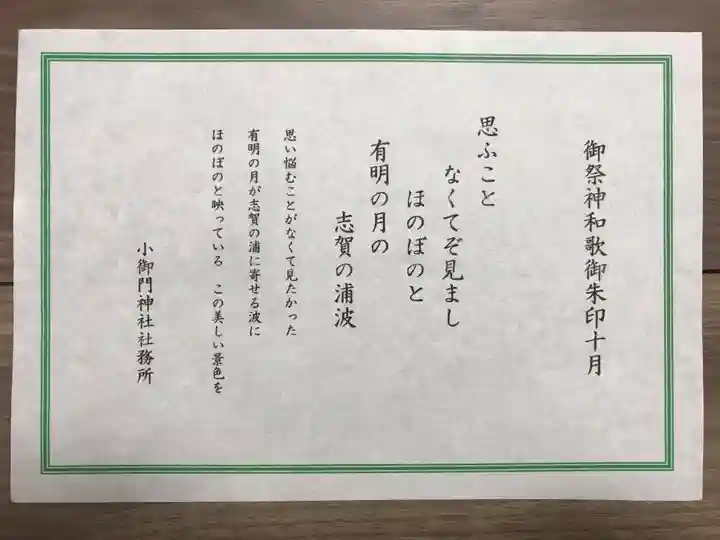 御祭神和歌御朱印十月
思ふこと
なくてぞ見まし
ほのぼのと
有明の月の
志賀の浦波
思い悩むことがなくて見たかった
有明の月が志賀の浦に寄せる波に
ほのぼのと映っている この美しい景色を
小御門神社社務所